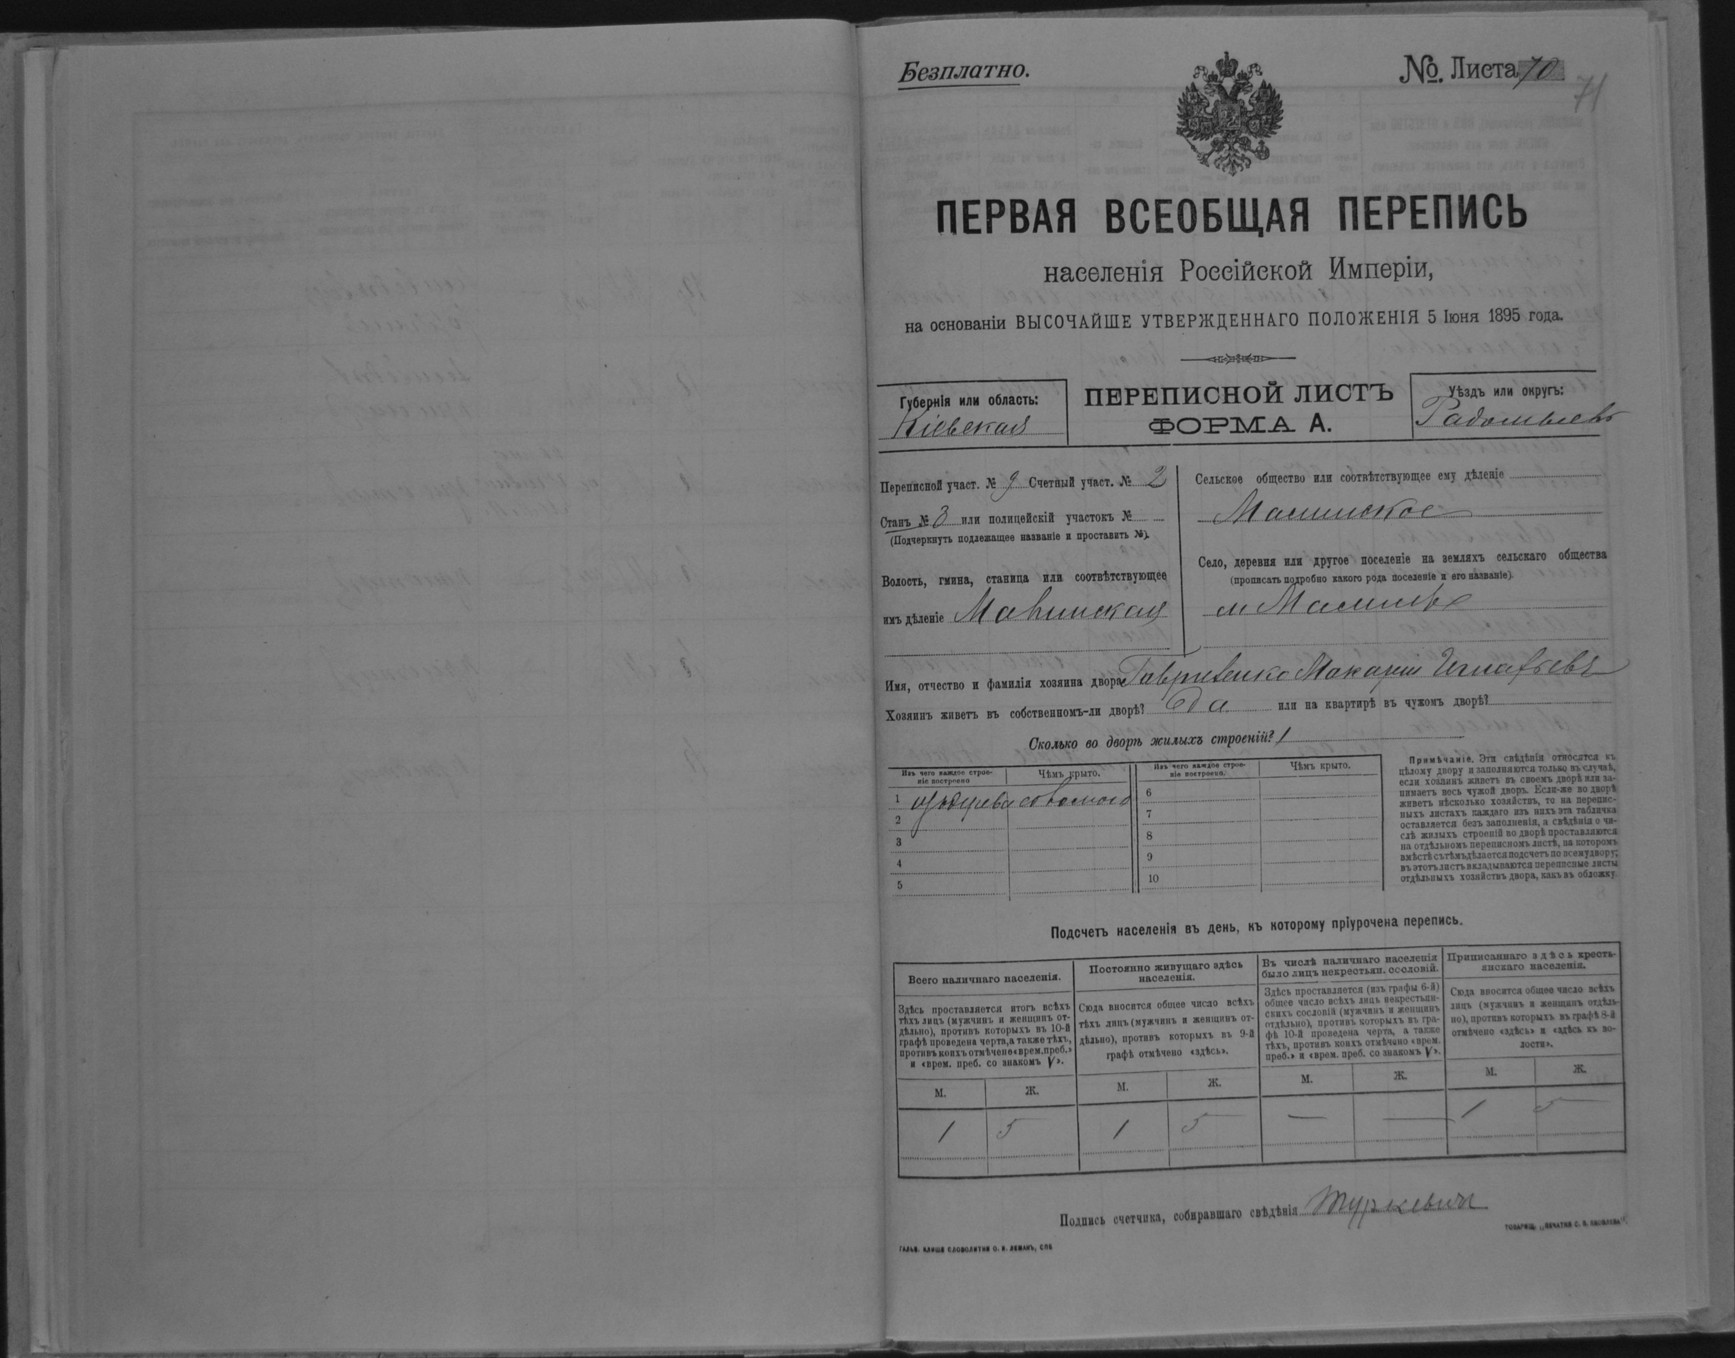 Безплатно.
№. Листа 70
71
ПЕРВАЯ ВСЕОБЩАЯ ПЕРЕПИСЬ
населенія Россійской Имперіи,
на основаніи ВЫСОЧАЙШЕ УТВЕРЖДЕННАГО ПОЛОЖЕНІЯ 5 Іюня 1895 года.
Губернія или область:
Кіевская
ПЕРЕПИСНОЙ ЛИСТЪ
ФОРМА А.
Уѣздъ или округъ:
Переписной участ. № 9 Счетный участ. № 2
Станъ № 3 или полицейскій участокъ № —
(Подчеркнуть подлежащее названіе и проставить №).
Волость, гмина, станица или соотвѣтствующее
имъ дѣленіе
Сельское общество или соотвѣтствующее ему дѣленіе
Малинское
Село, деревня или другое поселеніе на земляхъ сельскаго общества
(прописать подробно какого рода поселеніе и его названіе).
м Малинъ
Имя, отчество и фамилія хозяина двора Макарій Игнатьевъ
Хозяинъ живетъ въ собственномъ-ли дворѣ? да или на квартирѣ въ чужомъ дворѣ?
Сколько во дворѣ жилыхъ строеній? 1
Изъ чего каждое строе-
ніе построено
Чѣмъ крыто.
Изъ чего каждое строе-
ніе построено.
Чѣмъ крыто.
1 изъ дерева соломою
2
3
4
5
6
7
8
9
10
Примѣчаніе. Эти свѣдѣнія относятся къ
цѣлому двору и заполняются только въ случаѣ,
если хозяинъ живетъ въ своемъ дворѣ или за-
нимаетъ весь чужой дворъ. Если-же во дворѣ
живетъ нѣсколько хозяйствъ, то на перепис-
ныхъ листахъ каждаго изъ нихъ эта табличка
оставляется безъ заполненія, а свѣдѣнія о чи-
слѣ жилыхъ строеній во дворѣ проставляются
на отдѣльномъ переписномъ листѣ, на которомъ
вмѣстѣ съ тѣмъ дѣлается подсчетъ по всему двору;
въ этотъ листъ вкладываются переписные листы
отдѣльныхъ хозяйствъ двора, какъ въ обложку.
Подсчетъ населенія въ день, къ которому пріурочена перепись.
Всего наличнаго населенія.
Постоянно живущаго здѣсь
населенія.
Въ числѣ наличнаго населенія
было лицъ некрестьян. сословій.
Приписаннаго здѣсь кресть-
янскаго населенія.
Здѣсь проставляется итогъ всѣхъ
тѣхъ лицъ (мужчинъ и женщинъ от-
дѣльно), противъ которыхъ въ 10-й
графѣ проведена черта, а также тѣхъ,
противъ коихъ отмѣчено «врем. преб.»
и «врем. преб. со знакомъ V».
Сюда вносится общее число всѣхъ
тѣхъ лицъ (мужчинъ и женщинъ от-
дѣльно), противъ которыхъ въ 9-й
графѣ отмѣчено «здѣсь».
Здѣсь проставляется (изъ графы 6-й)
общее число всѣхъ лицъ некрестьян-
скихъ сословій (мужчинъ и женщинъ
отдѣльно), противъ которыхъ въ гра-
фѣ 10-й проведена черта, а также
тѣхъ, противъ коихъ отмѣчено «врем.
преб.» и «врем. преб. со знакомъ V».
Сюда вносятся общее число всѣхъ
лицъ (мужчинъ и женщинъ отдѣль-
но), противъ которыхъ въ графѣ 8-й
отмѣчено «здѣсь» и «здѣсь въ во-
лости».
М. Ж. М. Ж. М. Ж. М. Ж.
1 5 1 5 — — 1 5
Подпись счетчика, собиравшаго свѣдѣнія Туркевичъ
ГАЛЬВ. КЛИШЕ СЛОВОЛИТНИ О. И. ЛЕМАНЪ, СПБ
ТОВАРИЩ. „ПЕЧАТНЯ С. П. ЯКОВЛЕВА“.